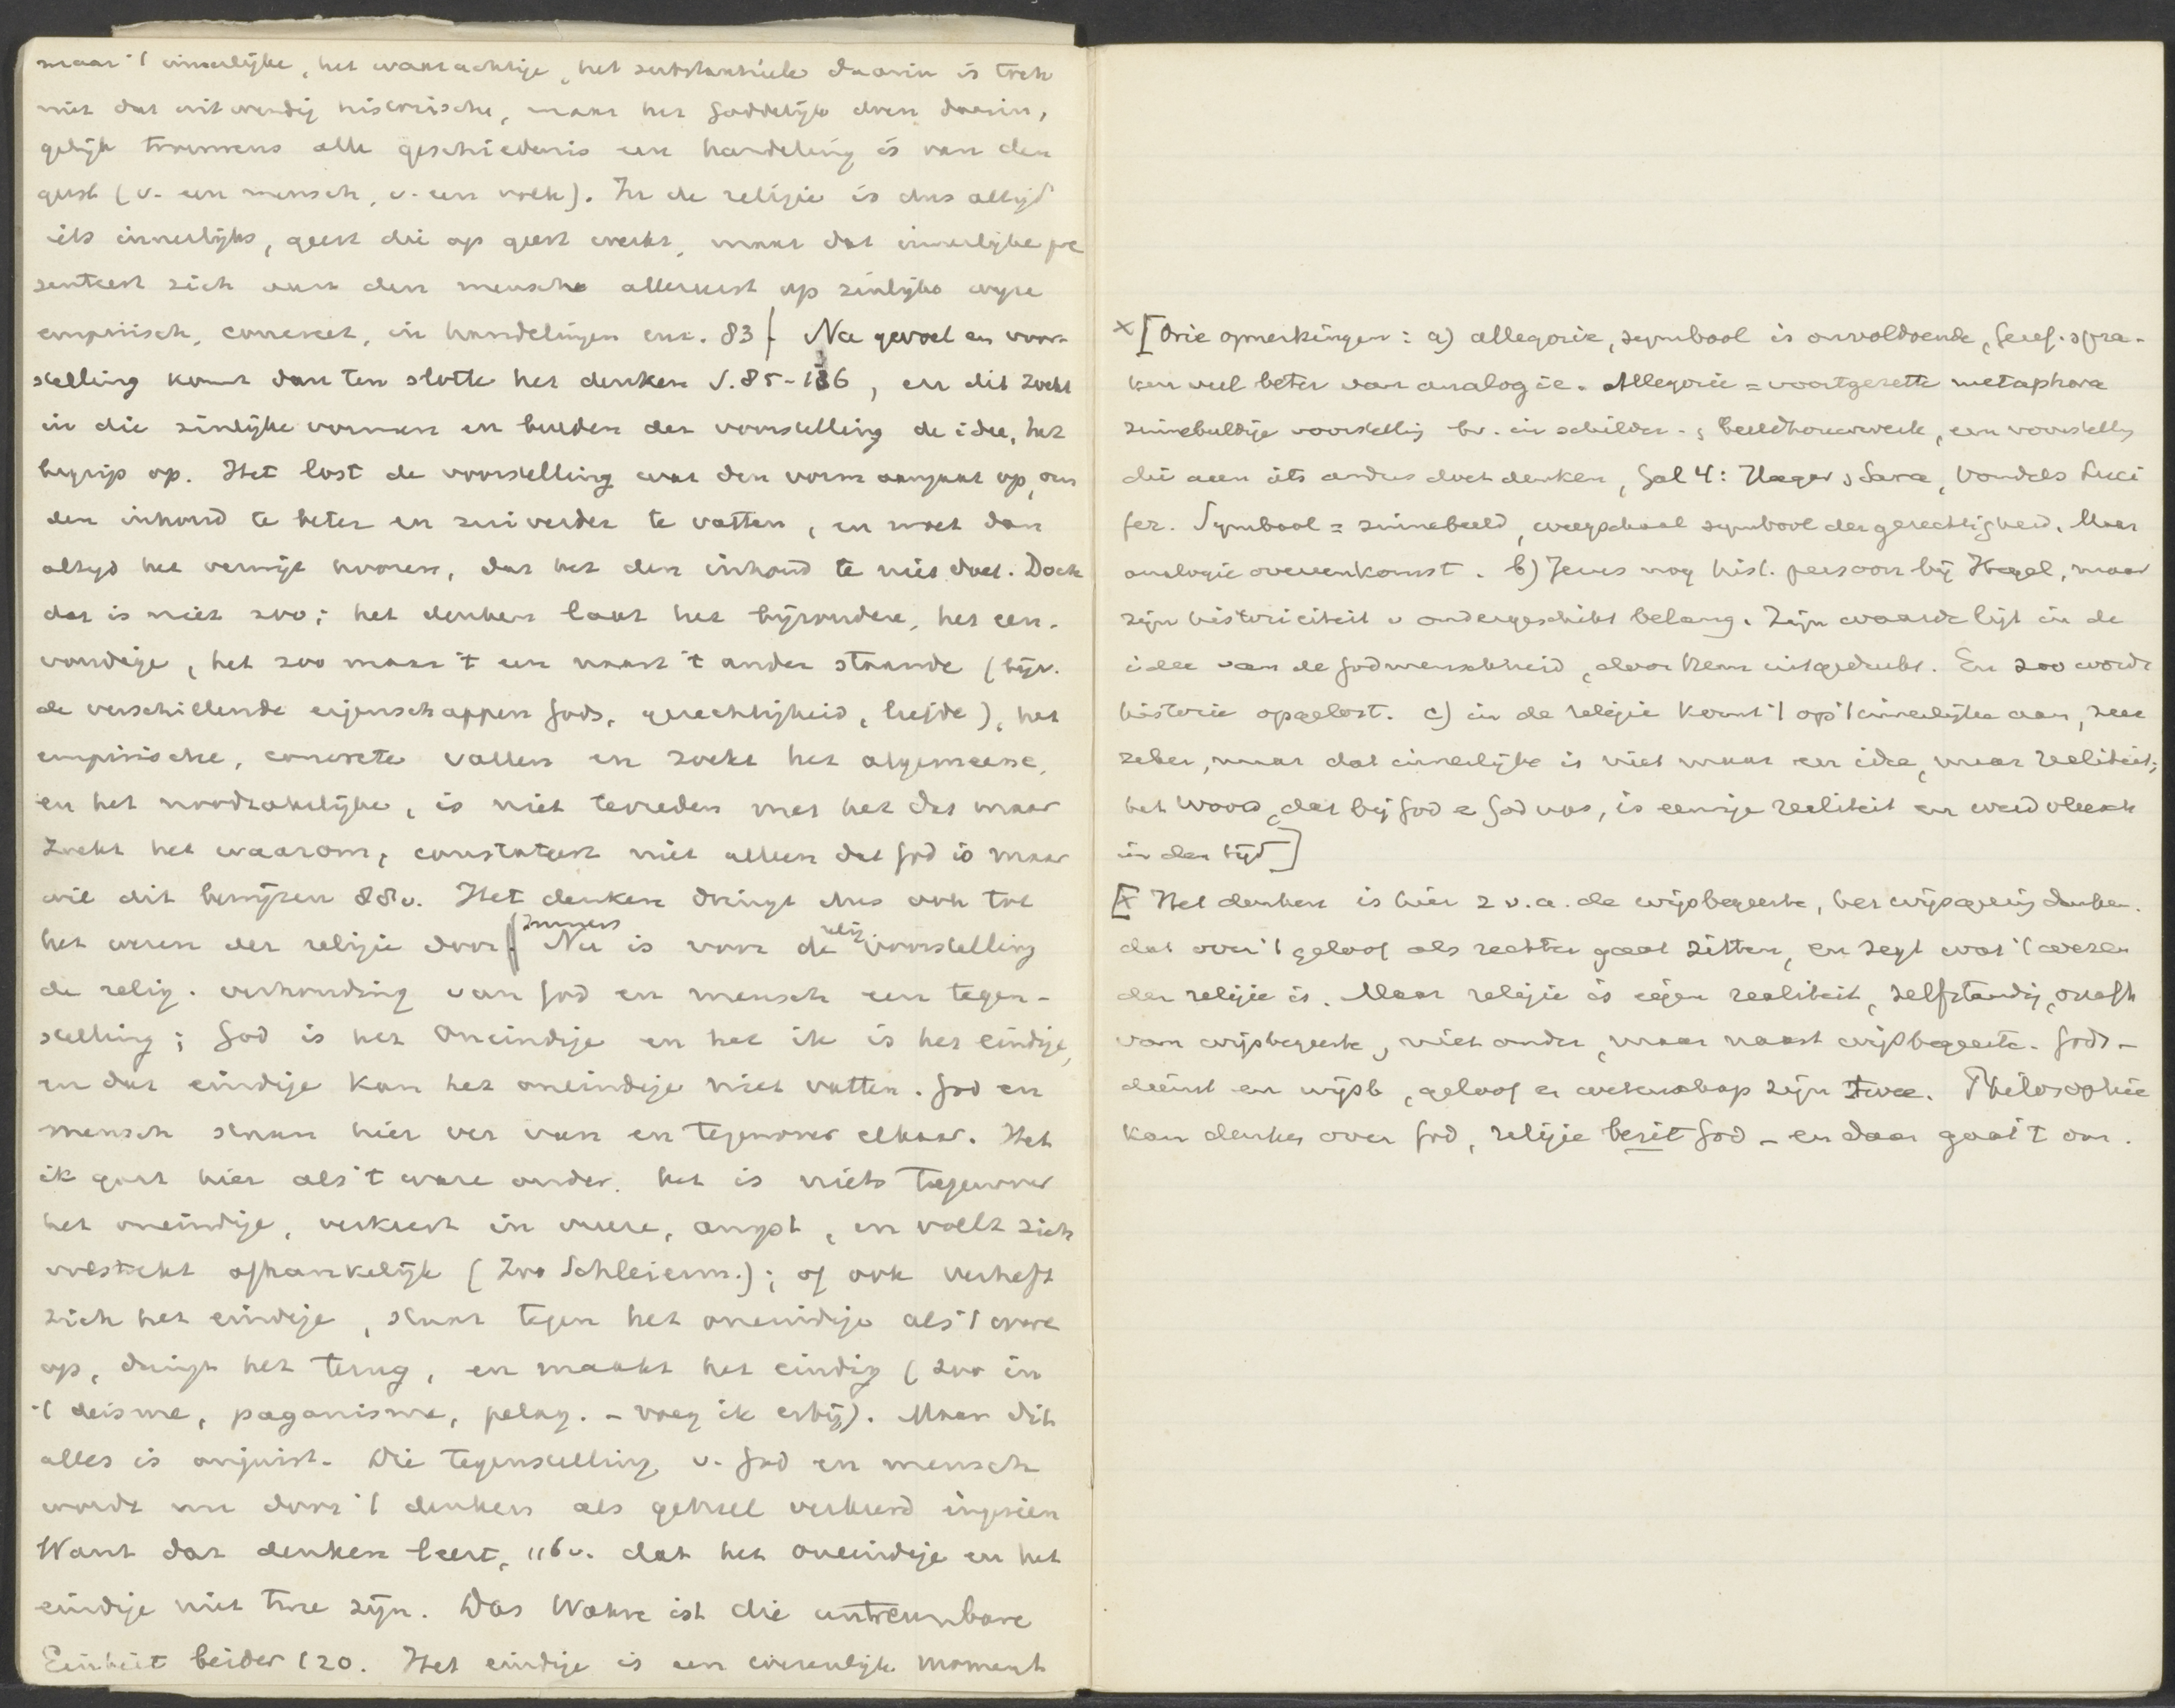 maar 't innerlijke, het waarachtige, het substantieele daarin is toch
niet dat uitwendig historische, maar het Goddelijk doen daarin,
gelijk trouwens alle geschiedenis een handeling is van den
geest (v. een mensch, v. een volk). In de religie is dus altijd
iets innerlijks, geest die op geest werkt, maar dat innerlijke pre
senteert zich aan den mensch allereerst op zinlijke wijze
empirisch, concreet, in handelingen enz. 83 [ Na gevoel en voor-
stelling komt dan ten slotte het denken S. 85-136, en dit zoekt
in die zinlijke vormen en beelden der voorstelling de idee, het
begrip op. Het lost de voorstelling wat den vorm aangaat op, om
den inhoud te beter en zuiverder te vatten, en moet dan
altijd het verwijt hooren, dat het den inhoud te niet doet. Doch
dat is niet zoo; het denken laat het bijzondere, het een-
voudige, het zoo maar 't een naast 't ander staande (bijv.
de verschillende eigenschappen Gods, gerechtigheid, liefde), het
empirische, concrete vallen en zoekt het algemeene,
en het noodzakelijke, is niet tevreden met het dat maar
zoekt het waarom, constateert niet alleen dat God is maar
wil dit bewijzen 88v. Het denken dringt dus ook tot
het wezen der religie door. [ Immers Nu is voor de relig. voorstelling
de relig. verhouding van God en mensch een tegen-
stelling; God is het Oneindige en het ik is het eindige,
en dat eindige kan het oneindige niet vatten. God en
mensch staan hier ver van en tegenover elkaar. Het
ik gaat hier als 't ware onder. het is niets tegenover
het oneindige, verkeert in vreeze, angst, en voelt zich
volstrekt afhankelijk (Zoo Schleierm.); of ook verheft
zich het eindige, staat tegen het oneindige als 't ware
op, dringt het terug, en maakt het eindig (zoo in
't deisme, paganisme, pelag. - voeg ik erbij). Maar dit
alles is onjuist. Die tegenstelling v. God en mensch
wordt nu door 't denken als geheel verkeerd ingezien
Want dat denken leert, 116v. dat het oneindige en het
eindige niet twee zijn. Das Wahre ist die untrennbare
Einheit beider 120. Het eindige is een wezenlijk moment
x [Drie opmerkingen: a) allegorie, symbool is onvoldoende, Geref. spra-
ken veel beter van analogie. Allegorie = voortgezette metaphora
zinnebeeldige voorstellig bv. in schilder- & beeldhouwwerk, een voorstellg
die aan iets anders doet denken, Gal 4: Hagar & Sara, Vondels Luci
fer. Symbool = zinnebeeld, weegschaal symbool der gerechtigheid. Maar
analogie overeenkomst. b) Jezus nog hist. persoon bij Hegel, maar
zijn historiciteit v ondergeschikt belang. Zijn waarde ligt in de
idee van de Godmenschheid, door Hem uitgedrukt. En zoo wordt
historie opgelost. c) in de religie komt 't op 't innerlijke aan, zeer
zeker, maar dat innerlijke is niet maar een idee, maar realiteit;
het Woord, dat bij God & God was, is eeuwige realiteit en werd vleesch
in den tijd]
[x Het denken is hier z v. a. de wijsbegeerte, het wijsgeerig denken.
dat over 't geloof als rechter gaat zitten, en zegt wat 't wezen
der religie is. Maar religie is eigen realiteit, zelfstandig, onafh
van wijsbegeerte, niet onder, maar naast wijsbegeerte. Gods-
dienst en wijsb, geloof en wetenschap zijn twee. Philosophie
kan denken over God, religie bezit God - en daar gaat 't om.